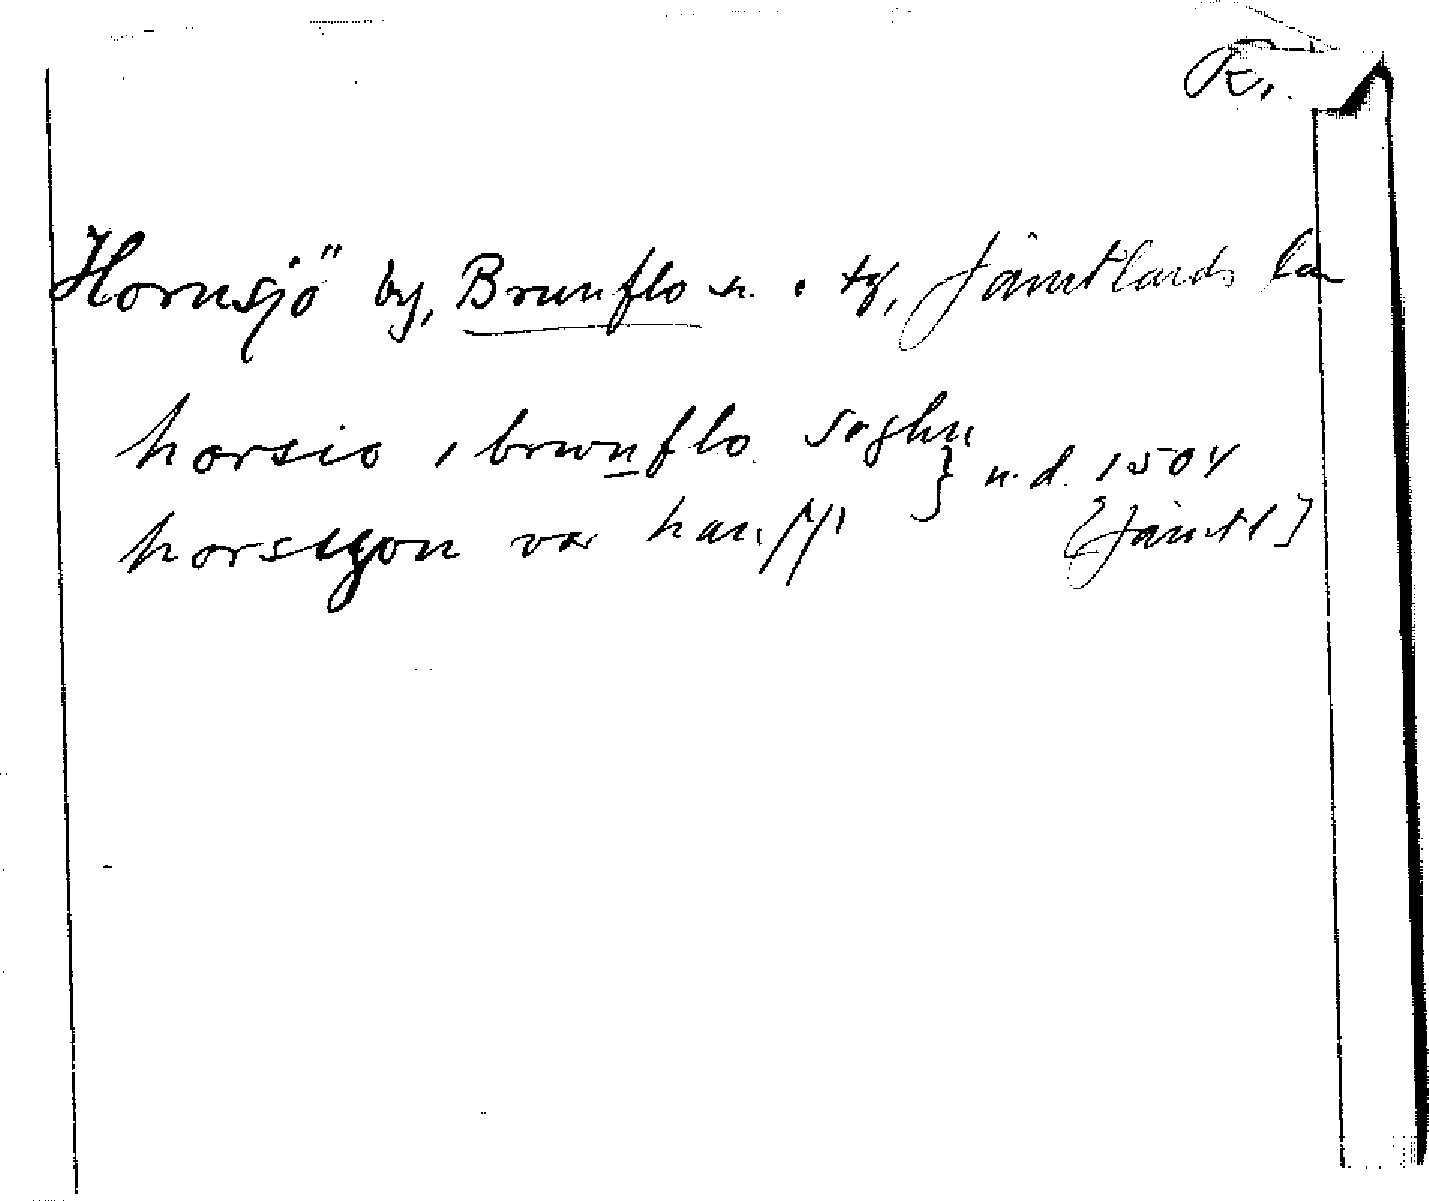 R.
Hornsjö by, Brunflo sn. o. tg, Jämtlands lä
horsio i brwnflo soghn
horsiyon var han
n.d. 1504
[Jämtl]